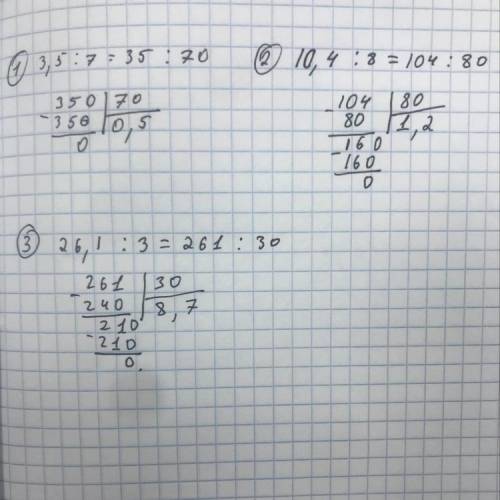 ① 3,5 : 7 = 35 : 70
- 350 | 70
350 | 0,5
0
② 10,4 : 8 = 104 : 80
- 104 | 80
80 | 1,2
- 160
160
0
③ 26,1 : 3 = 261 : 30
- 261 | 30
240 | 8,7
- 210
210
0.